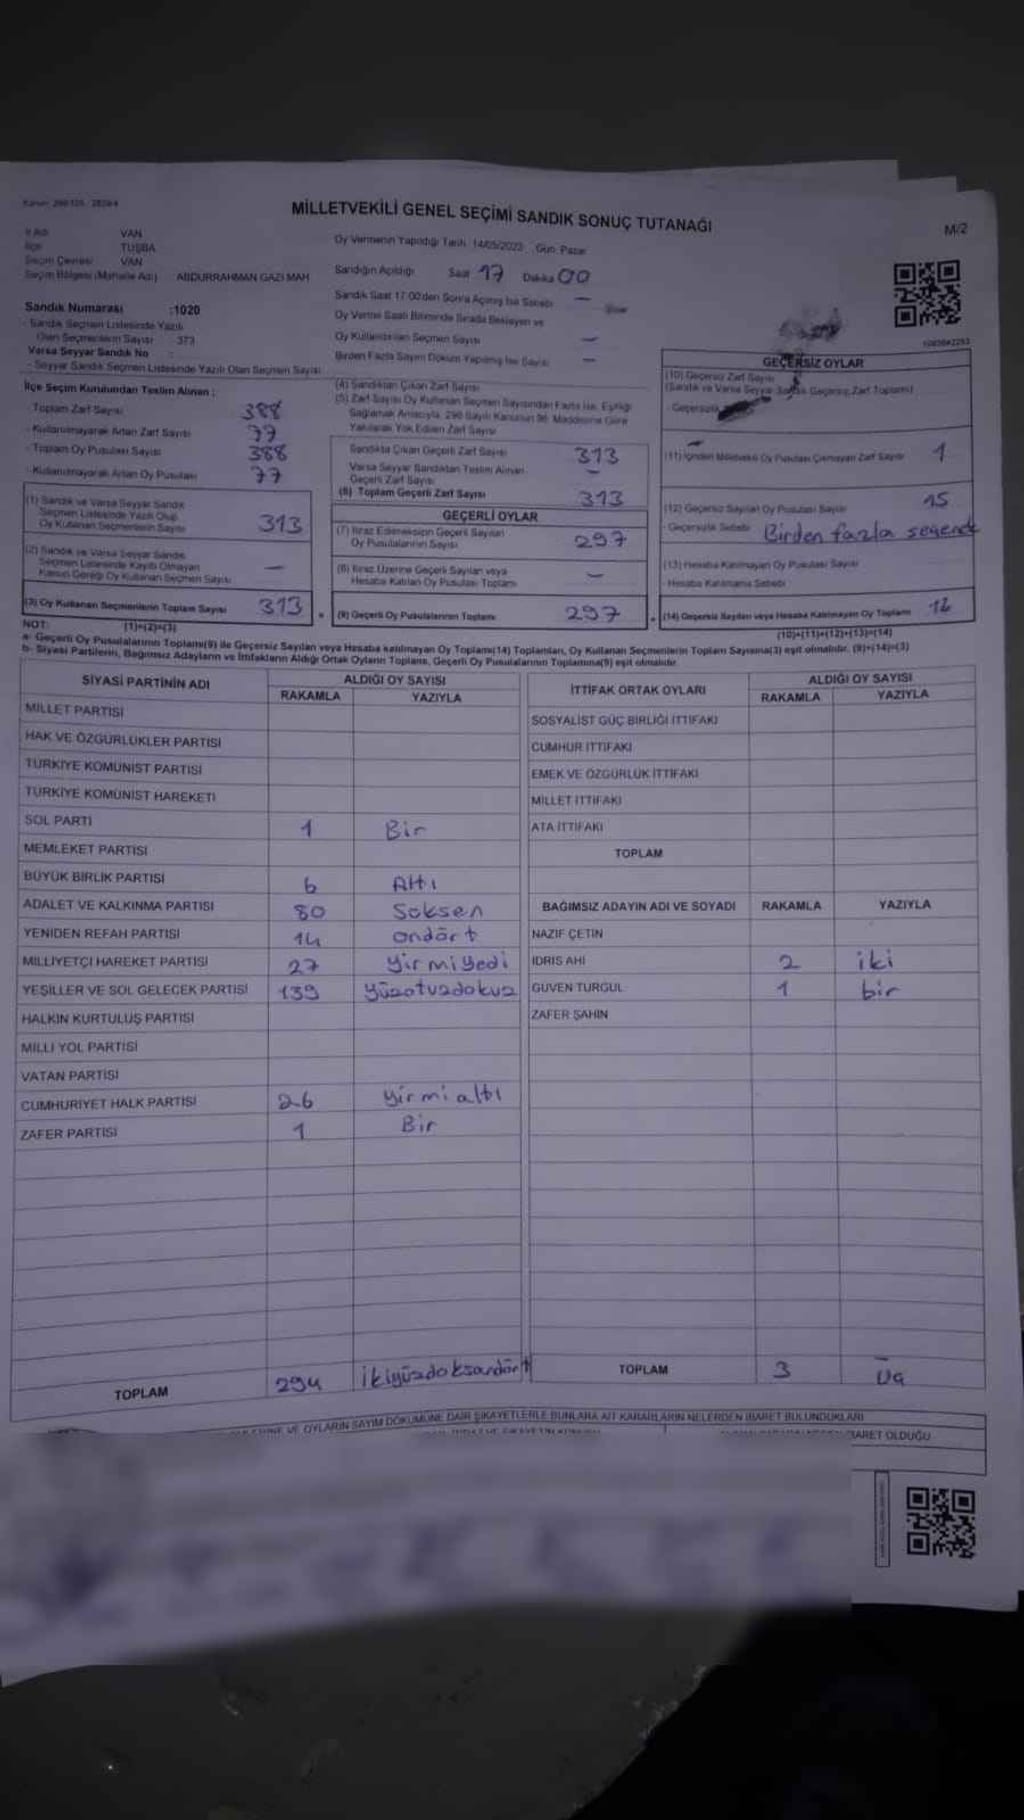 MİLLETVEKİLİ GENEL SEÇİMİ SANDIK SONUÇ TUTANAĞI
M/2
İl Adı VAN
İlçe TUŞBA
Seçim Çevresi VAN
Seçim Bölgesi (Mahalle Adı) ABDURRAHMAN GAZİ MAH
Oy Vermenin Yapıldığı Tarih 14/05/2023 Gün Pazar
Sandığın Açıldığı Saat 17 Dakika 00
Sandık Saat 17:00'den Sonra Açılmış İse Sebebi —
Oy Verme Saati Bitiminde Sırada Bekleyen ve
Oy Kullandırılan Seçmen Sayısı —
Birden Fazla Sayım Döküm Yapılmış İse Sayısı —
Sandık Numarası :1020
- Sandık Seçmen Listesinde Yazılı
Olan Seçmenlerin Sayısı 373
Varsa Seyyar Sandık No :
- Seyyar Sandık Seçmen Listesinde Yazılı Olan Seçmen Sayısı
İlçe Seçim Kurulundan Teslim Alınan :
- Toplam Zarf Sayısı 388
- Kullanılmayarak Artan Zarf Sayısı 77
- Toplam Oy Pusulası Sayısı 388
- Kullanılmayarak Artan Oy Pusulası 77
(1) Sandık ve Varsa Seyyar Sandık
Seçmen Listesinde Yazılı Olup
Oy Kullanan Seçmenlerin Sayısı 313
(2) Sandık ve Varsa Seyyar Sandık
Seçmen Listesinde Kayıtlı Olmayan
Kanun Gereği Oy Kullanan Seçmen Sayısı —
(3) Oy Kullanan Seçmenlerin Toplam Sayısı 313
(1)+(2)=(3)
(4) Sandıktan Çıkan Zarf Sayısı
(5) Zarf Sayısı Oy Kullanan Seçmen Sayısından Fazla İse, Eşitliği
Sağlamak Amacıyla, 298 Sayılı Kanunun 98. Maddesine Göre
Yakılarak Yok Edilen Zarf Sayısı
Sandıkta Çıkan Geçerli Zarf Sayısı 313
Varsa Seyyar Sandıktan Teslim Alınan
Geçerli Zarf Sayısı —
(6) Toplam Geçerli Zarf Sayısı 313
GEÇERLİ OYLAR
(7) İtiraz Edilmeksizin Geçerli Sayılan
Oy Pusulalarının Sayısı 297
(8) İtiraz Üzerine Geçerli Sayılan veya
Hesaba Katılan Oy Pusulası Toplamı —
(9) Geçerli Oy Pusulalarının Toplamı 297
GEÇERSİZ OYLAR
(10) Geçersiz Zarf Sayısı
(Sandık ve Varsa Seyyar Sandık Geçersiz Zarf Toplamı)
(11) İçinden Milletvekili Oy Pusulası Çıkmayan Zarf Sayısı 1
(12) Geçersiz Sayılan Oy Pusulası Sayısı 15
- Geçersizlik Sebebi Birden fazla seçenek
(13) Hesaba Katılmayan Oy Pusulası Sayısı
- Hesaba Katılmama Sebebi
(14) Geçersiz Sayılan veya Hesaba Katılmayan Oy Toplamı 16
(10)+(11)+(12)+(13)=(14)
NOT:
a- Geçerli Oy Pusulalarının Toplamı(9) ile Geçersiz Sayılan veya Hesaba katılmayan Oy Toplamı(14) Toplamları, Oy Kullanan Seçmenlerin Toplam Sayısına(3) eşit olmalıdır. (9)+(14)=(3)
b- Siyasi Partilerin, Bağımsız Adayların ve İttifakların Aldığı Ortak Oyların Toplamı, Geçerli Oy Pusulalarının Toplamına(9) eşit olmalıdır.
SİYASİ PARTİNİN ADI ALDIĞI OY SAYISI
RAKAMLA YAZIYLA
MİLLET PARTİSİ
HAK VE ÖZGÜRLÜKLER PARTİSİ
TÜRKİYE KOMÜNİST PARTİSİ
TÜRKİYE KOMÜNİST HAREKETİ
SOL PARTİ 1 Bir
MEMLEKET PARTİSİ
BÜYÜK BİRLİK PARTİSİ 6 Altı
ADALET VE KALKINMA PARTİSİ 80 Seksen
YENİDEN REFAH PARTİSİ 14 ondört
MİLLİYETÇİ HAREKET PARTİSİ 27 yirmiyedi
YEŞİLLER VE SOL GELECEK PARTİSİ 139 yüzotuzdokuz
HALKIN KURTULUŞ PARTİSİ
MİLLİ YOL PARTİSİ
VATAN PARTİSİ
CUMHURİYET HALK PARTİSİ 26 yirmialtı
ZAFER PARTİSİ 1 Bir
TOPLAM 294 ikiyüzdoksandört
İTTİFAK ORTAK OYLARI ALDIĞI OY SAYISI
RAKAMLA YAZIYLA
SOSYALİST GÜÇ BİRLİĞİ İTTİFAKI
CUMHUR İTTİFAKI
EMEK VE ÖZGÜRLÜK İTTİFAKI
MİLLET İTTİFAKI
ATA İTTİFAKI
TOPLAM
BAĞIMSIZ ADAYIN ADI VE SOYADI RAKAMLA YAZIYLA
NAZİF ÇETİN
İDRİS AHİ 2 iki
GÜVEN TURGUL 1 bir
ZAFER ŞAHİN
TOPLAM 3 Üç
VE OYLARIN SAYIM DÖKÜMÜNE DAİR ŞİKAYETLERLE BUNLARA AİT KARARLARIN NELERDEN İBARET BULUNDUKLARI
İBARET OLDUĞU